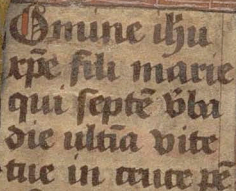 Omine ihu
xp̄e fili marie
qui septē v̓ba
die ultīa vite
tue in cruce pē